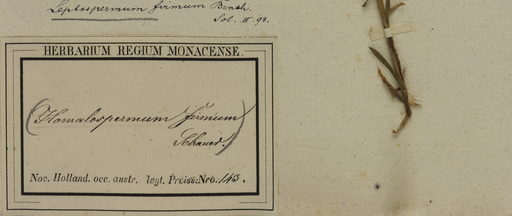 Leptospermum firmum Benth.
Sol. II. 93.
HERBARIUM REGIUM MONACENSE.
(Homalospermum firmum
Schauer.)
Nov. Holland. occ. austr. legt. Preiss: Nro. 143.